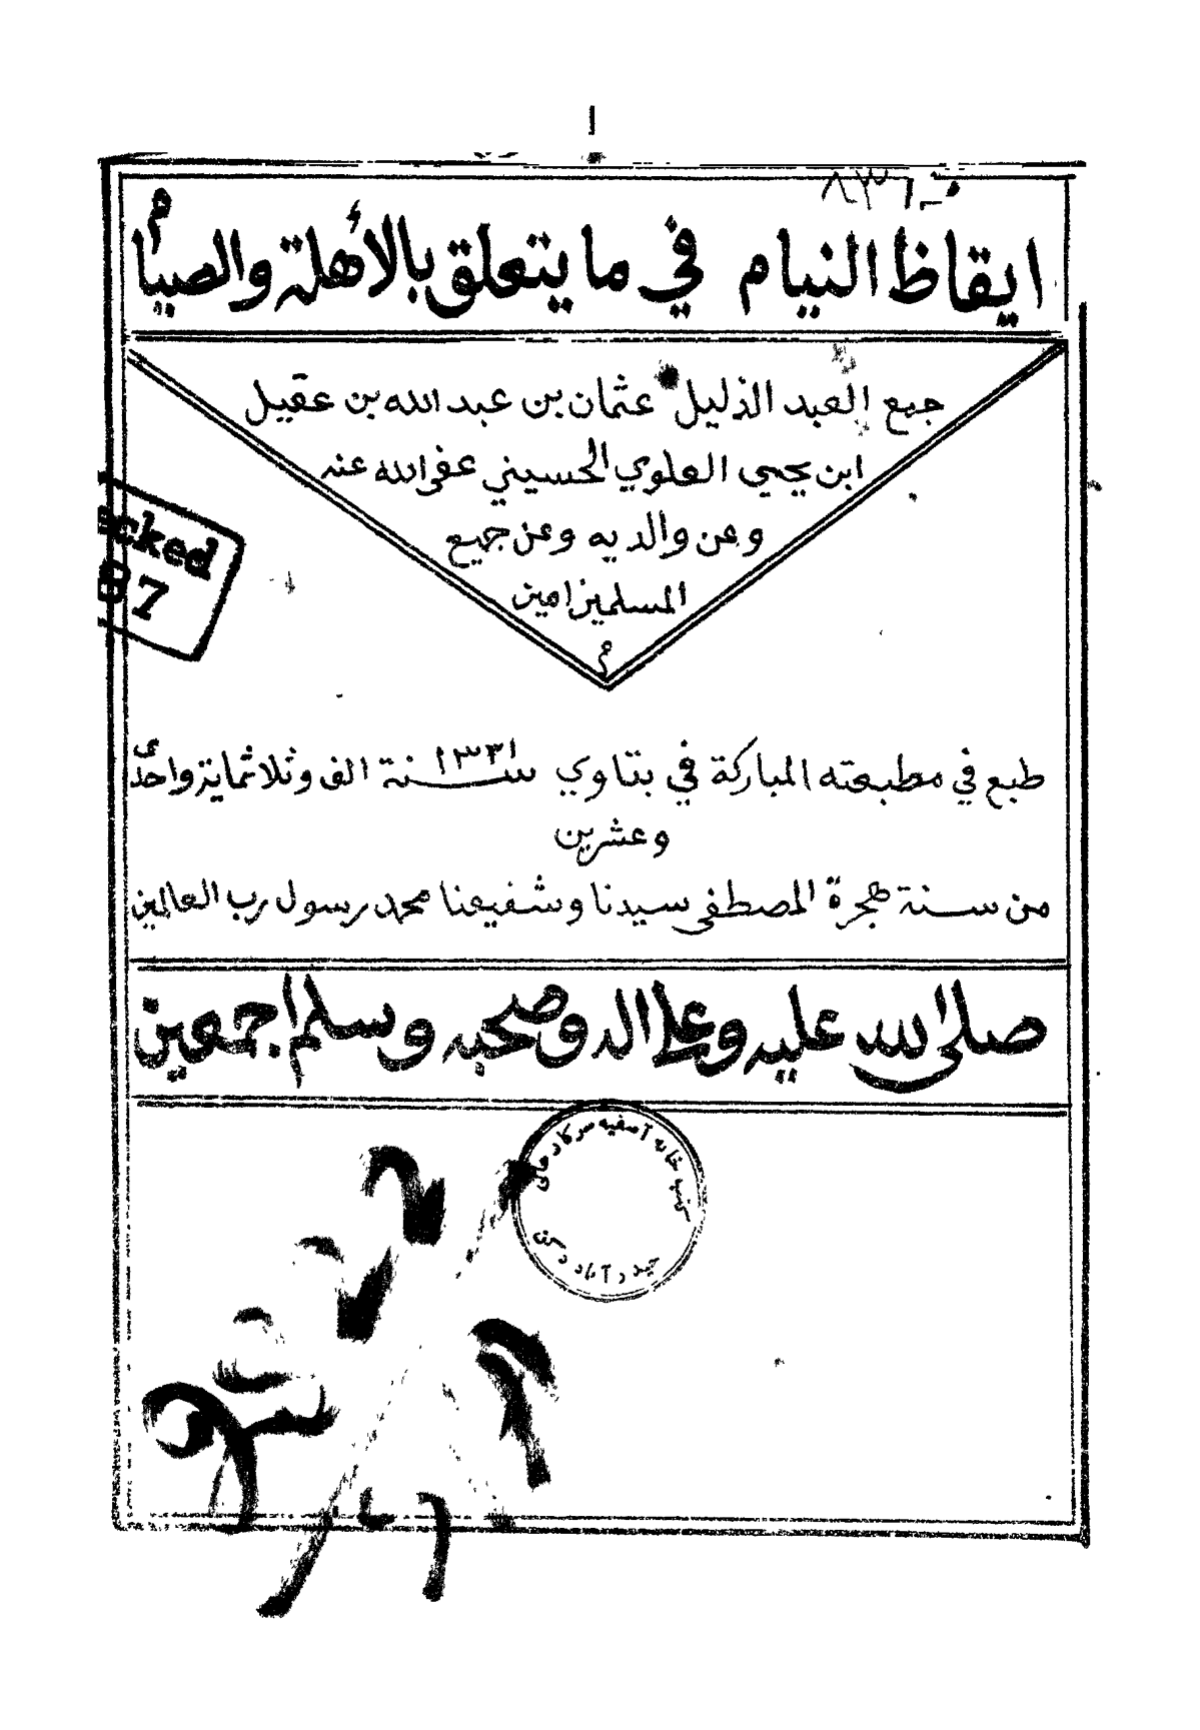 ا
ايقاظ النيام في ما يتعلق بالأهلة والصيام
جمع العبد الذليل عثمان بن عبد الله بن عقيل
ابن يحيى العلوي الحسيني عفى الله عنه
وعن والديه وعن جميع
المسلمين امين
م
طبع في مطبعته المباركة في بتاوي سنة ١٣٣١ الف وثلاثماية واحدى
وعشرين
من سنة هجرة المصطفى سيدنا وشفيعنا محمد رسول رب العالمين
صلى الله عليه وعلى اله وصحبه وسلم اجمعين
ecked
87
كتب خانه آصفيه سركار عالي
حيدرآباد دكن